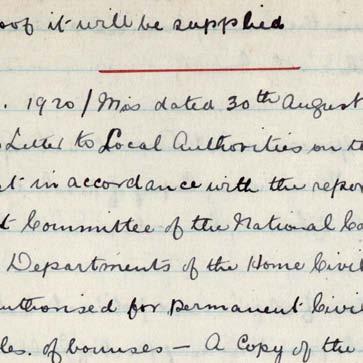 oof it will be supplied
. 1920/Mis dated 30th August
Letter to Local Authorities on t
t in accordance with the repor
t Committee of the National Co
Departments of the Home Civil
uthorised for permanent Civi
les. of bonuses — A Copy of the